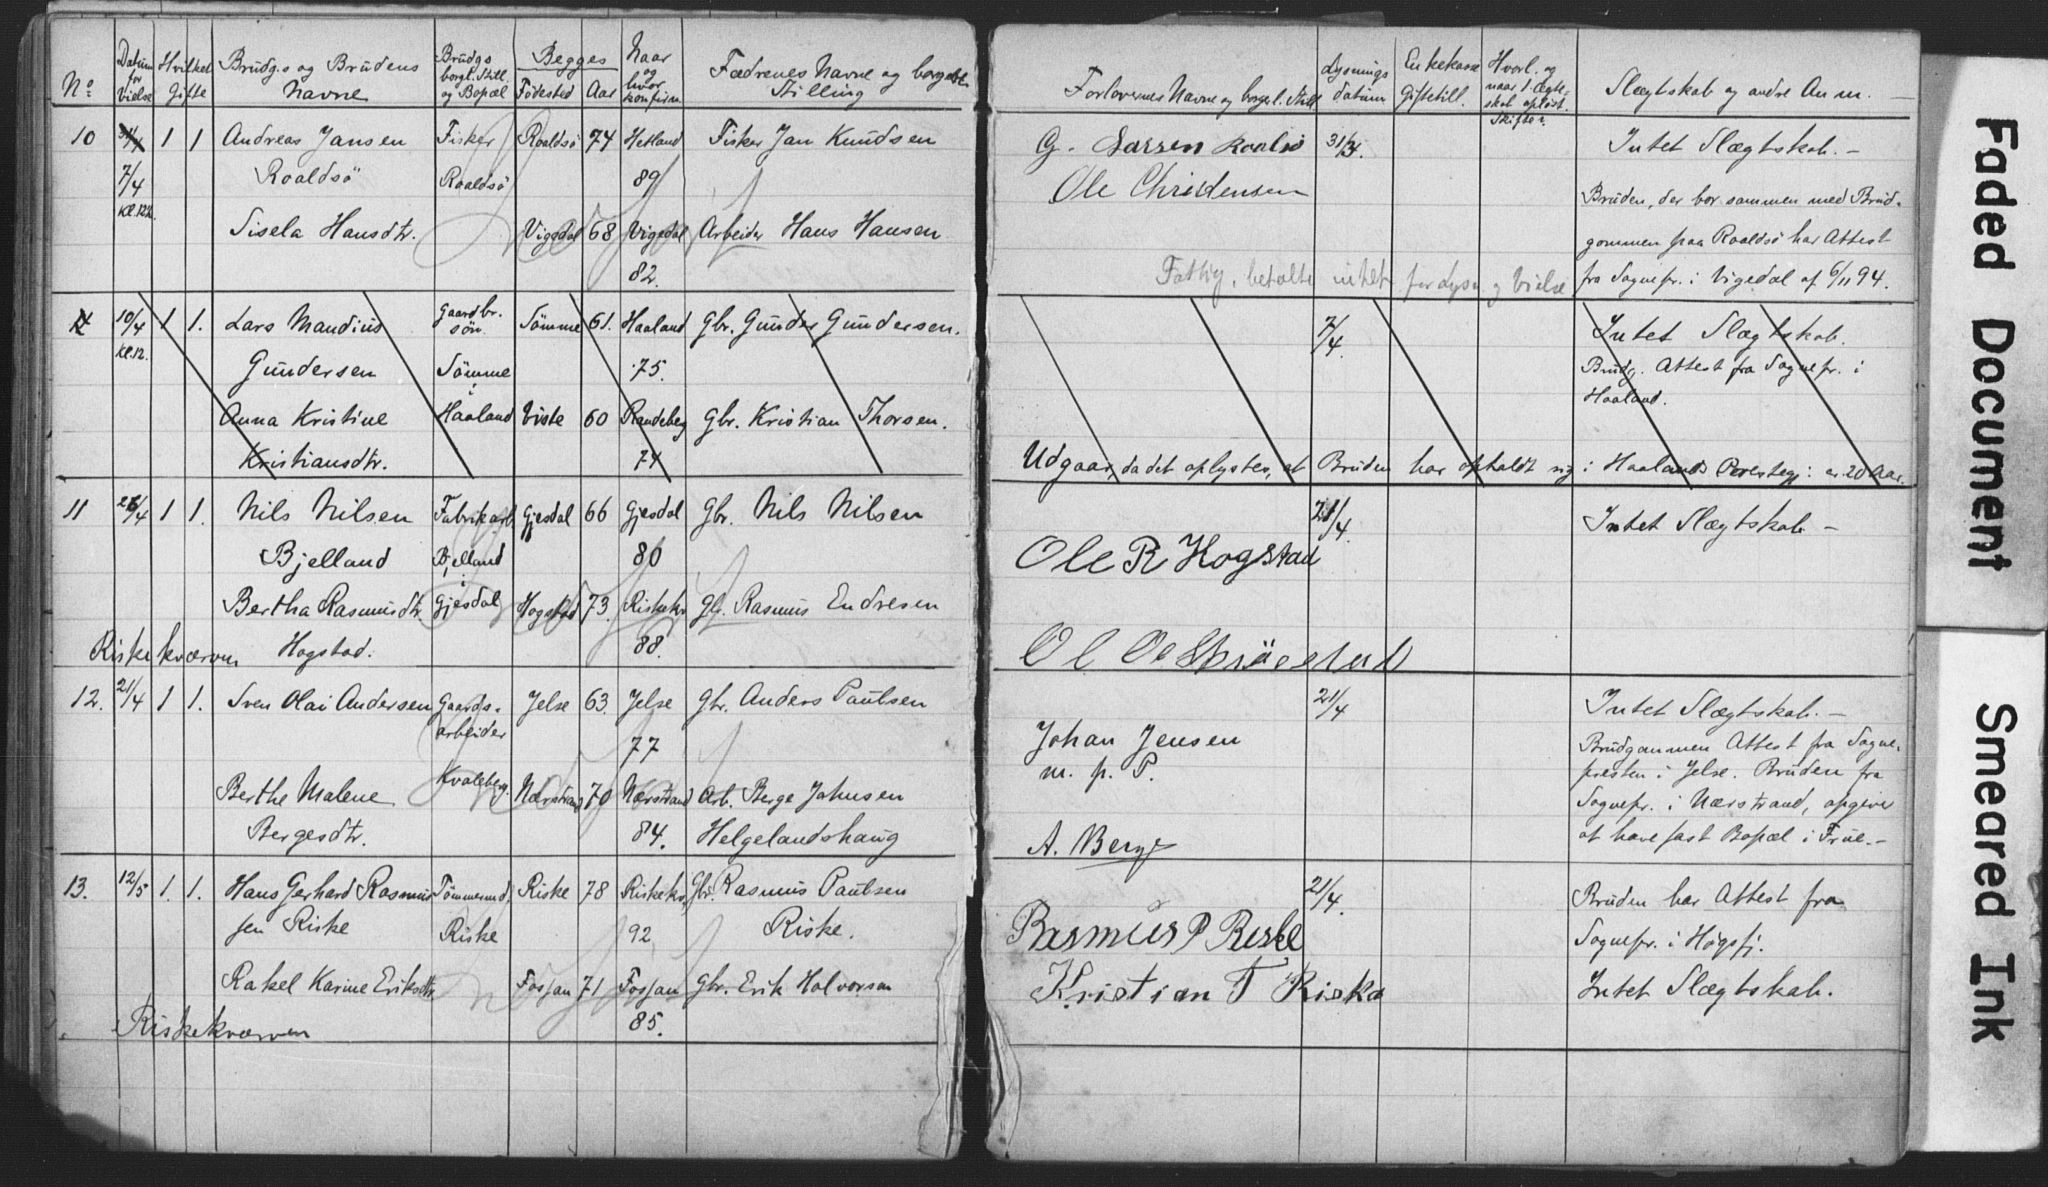 No
Datum for Vielse
Hvilket Gifte
Brudg.s og Brudens Navne
Brudgs borgl. Still. og Bopæl
Begges
Fødested Aar
Naar og hvor konfirm.
Fædrenes Navne og borgerl. Stilling
Forlovernes Navne og borgerl. Still.
Lysnings datum
Enkekasse Giftetill.
Hvorl. og naar f. Ægte-skab opløst. Skifte?
Slægtskab og andre Anm.
10 1 1 Andreas Jansen Fisker Roaldsö 74 Hetland Fisker Jan Knudsen
7/4 Roaldsö Roaldsö 89
Kl. 12½
Sisela Hansdtr. Vigedal 68 Vigedal Arbeider Hans Hansen
82.
G. Larsen Roalsö 31/3. Intet Slægtskab. —
Ole Christensen
Bruden, der bor sammen med Brud-
gommen paa Roaldsö har Attest
Fattig, betalte intet for Lysn. og Vielse
fra Sognepr. i Vigedal af 6/11 94.
10/4 1 1. Lars Mandius Gaardbr. sön Sömme 61. Haaland Gbr. Gunder Gundersen.
Kl. 12. Gundersen Sömme 75.
i
Anna Kristine Haaland Viste 60 Randeberg Gbr. Kristian Thorsen.
Kristiansdtr. 74
7/4. Intet Slægtskab.
Brudg. Attest fra Sognepr. i
Haaland.
Udgaar, da det oplystes, at Bruden har opholdt sig i Haalands Prestegj: ca. 20 Aar.
11 1 1. Nils Nilsen Fabrikarb Gjesdal 66 Gjesdal Gbr. Nils Nilsen
Bjelland Bjelland 80
i
Bertha Rasmusdtr. Gjesdal Hogstad 73. Riskekv. Gbr. Rasmus Endresen
Riskekværven Hogstad. 88.
21/4. Intet Slægtskab —
Ole R Hogstad
12. 21/4 1 1. Sven Olai Andersen Gaards- Jelse 63. Jelse Gbr. Anders Paulsen
arbeider 77
Berthe Malene Kvaleberg. Nærstrand 70 Nærstrand Arb. Berge Johnsen
Bergesdtr. 84. Helgelandshaug
21/4 Intet Slægtskab. —
Johan Jensen
m. p. P.
A. Berge
Brudgommen Attest fra Sogne-
presten i Jelse. Bruden fra
Sognepr. i Nærstrand, opgiver
at have fast Bopæl i Frue. —
13. 12/5 1. 1. Hans Gerhard Rasmus Tömmermd. Riske 78 Riskekv. Gbr. Rasmus Paulsen
sen Riske Riske 92 Riske.
Rakel Karine Eriksdtr. Fosjan 71 Fosjan Gbr. Erik Halvorsen
Riskekværven 85.
21/4. Bruden har Attest fra
Rasmus P Reske Sognepr. i Högsfj.
Kristian T Riska Intet Slægtskab.
Faded Document
Smeared Ink